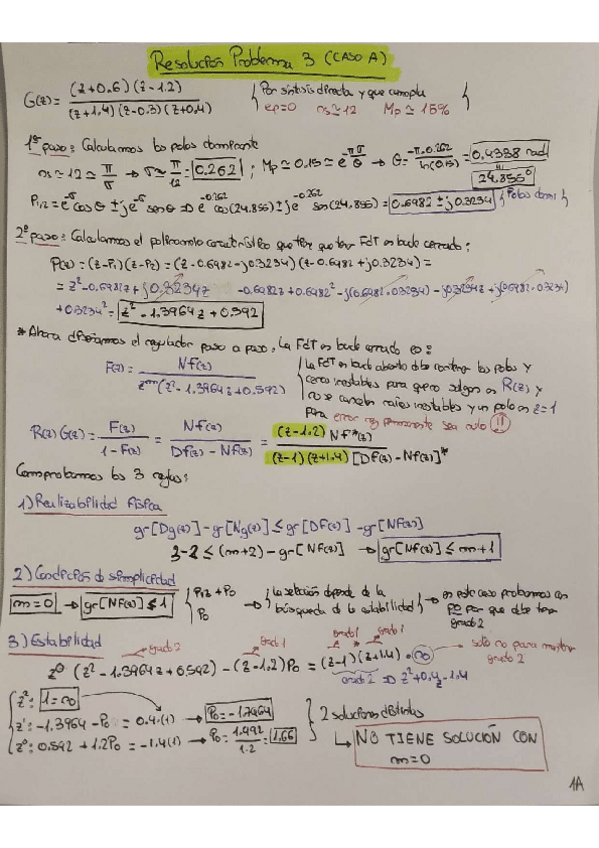 Resolución Problema 3 (CASO A)
G(z) = (z+0.6)(z-1.2) / (z+1.4)(z-0.3)(z+0.4) { Por síntesis directa y que cumpla
ep=0 ns≃12 Mp≃15% }
1er paso: Calculamos los polos dominante
ns≃12≃ π/σ → σ≃ π/12 = 0.262 ; Mp≃0.15≃e^(-πσ/θ) → θ = -π·0.262 / ln(0.15) = 0.4338 rad
24.856°
P1,2 = e^-σ cosθ ± j e^-σ senθ => e^-0.262 cos(24.856) ± j e^-0.262 sen(24.856) = 0.6982 ± j0.3234 } Polos domi {
2º paso: Calculamos el polinomio característico que tiene que tener FdT en bucle cerrado:
P(z) = (z-P1)(z-P2) = (z-0.6982-j0.3234)(z-0.6982+j0.3234) =
= z²-0.6982z+j0.3234z -0.6982z+0.6982²-j(0.6982·0.3234)-j0.3234z+j(0.6982·0.3234)
+0.3234² = z²-1.3964z+0.592
*Ahora diseñamos el regulador paso a paso, La FdT en bucle cerrado es:
F(z) = Nf(z) / z^m(z²-1.3964z+0.592)
La FdT en bucle abierto debe contener los polos y
ceros inestables para que no salgan en R(z) y
no se cancelen raíces inestables y un polo en z=1
Para error reg permanente sea nulo !!
R(z)G(z) = F(z) / 1-F(z) = Nf(z) / Df(z)-Nf(z) = (z-1.2) Nf*(z) / (z-1)(z+1.4) [Df(z)-Nf(z)]*
Comprobamos las 3 reglas:
1) Realizabilidad Física
gr[Dg(z)]-gr[Ng(z)] ≤ gr[Df(z)]-gr[Nf(z)]
3-2 ≤ (m+2)-gr[Nf(z)] → gr[Nf(z)] ≤ m+1
2) Condición de simplicidad
m=0 → gr[Nf(z)] ≤ 1 { P1z+P0
P0 → La selección depende de la
búsqueda de la estabilidad } → en este caso probamos con
P0 por que debe tener
grado 2
3) Estabilidad
grado 2 grado 1 grado 1 grado 1 solo n0 para mantener
grado 2
z⁰ (z²-1.3964z+0.592)-(z-1.2)P0 = (z-1)(z+1.4)·n0
grado 2 => z²+0.4z-1.4
z²: 1=n0
z¹: -1.3964-P0 = 0.4·(1) → P0=-1.7964
z⁰: 0.592+1.2P0 = -1.4(1) → P0= 1.992/1.2 = 1.66
2 soluciones distintas
↳ NO TIENE SOLUCIÓN CON
m=0
1A